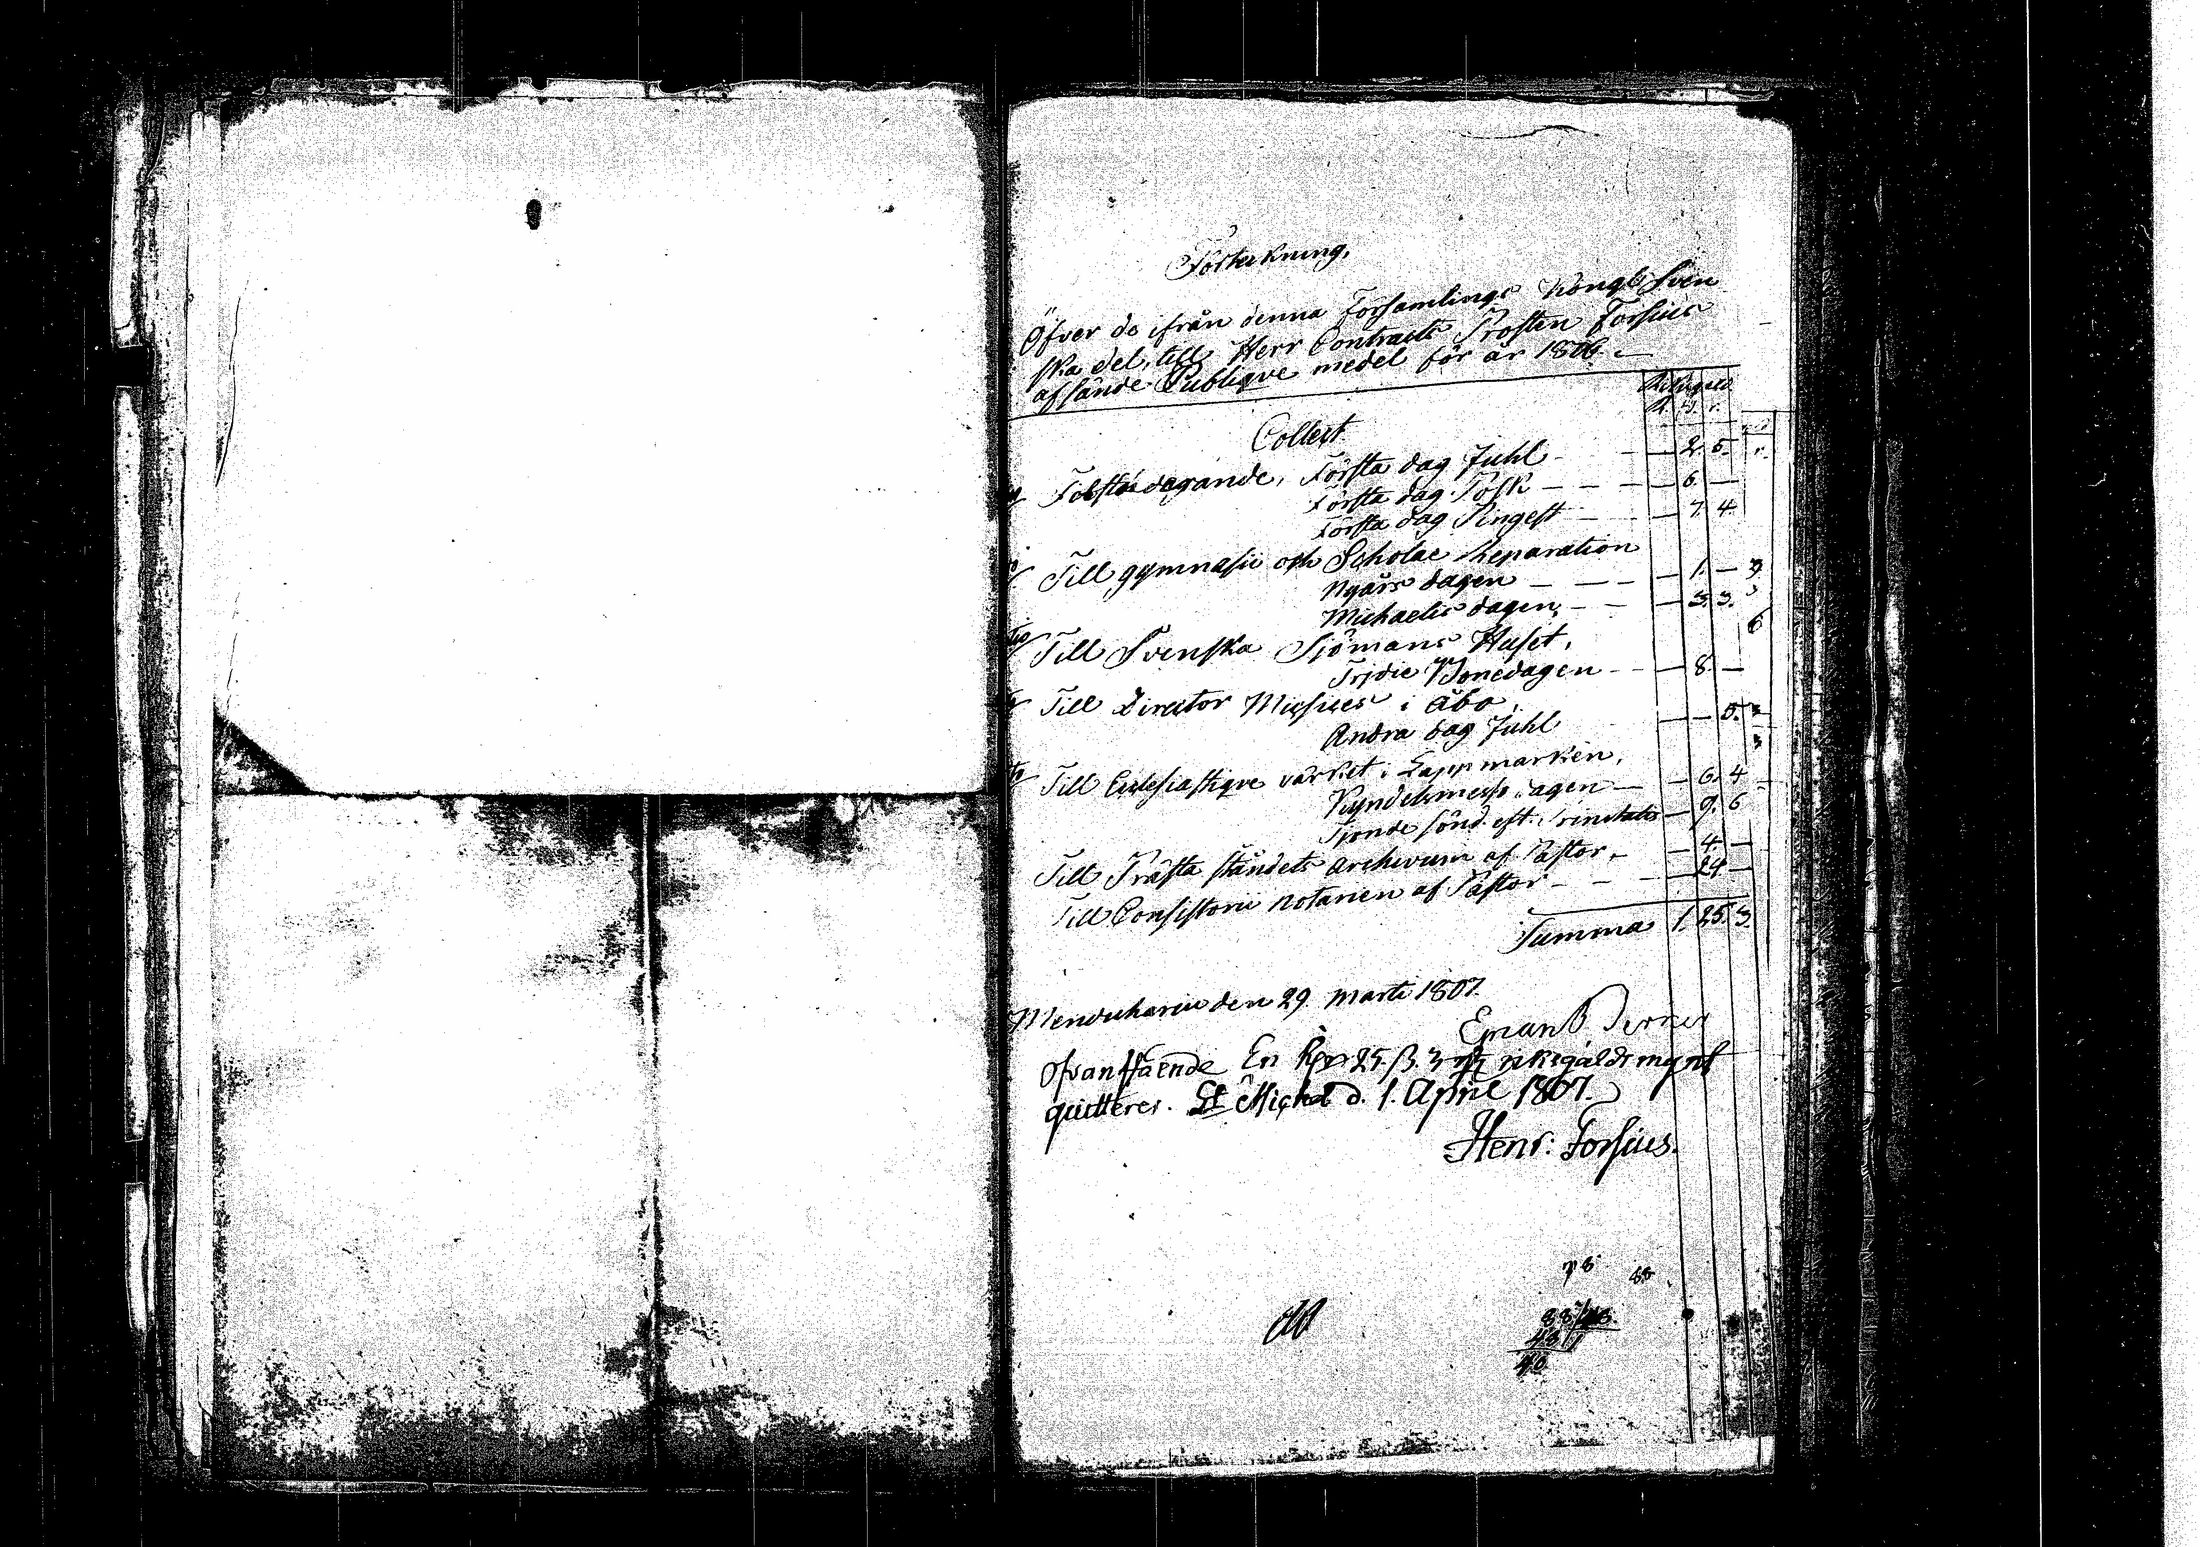 Förtekning,
Öfver de ifrån denna Församlings Kongl. Sven
ska del, till Herr Contracts Prosten Forsius
afsände Publique medel för år 1806. —
Riksgäld
R. ß. r.
Collect
Första dag Juhl — 2. 5.
Första dag Påsk — — — 6. —
Första dag Pingest — — 7. 4.
Till gymnasii och Scholae Reparation
Nyårs dagen — — — — 1. —
Michaelis dagen, — — — 3. 3.
Till Svenska Sjömans Huset,
Tridie Bönedagen — — 8. —
Till Director Musices i Åbo,
Andra dag Juhl — — 5.
Till Ecclesiastique värket i Lappmarken,
Kyndelsmesso dagen — — 6. 4
Tjonde Sönd. eft. Trinitatis — 9. 6
Till Prästa ståndets Archivum af Pastor, — — 4. —
Till Consistorii notarien af Pastor — — — 24 —
Summa 1. 25. 3.
den 29. Marti 1807.
Ofvanstående En Rdr 25. ß. 3 riksgälds mynt
quitteras. St Michel d. 1. April 1807.
Henr: Forsius.
78 88
88/48
48 1
40